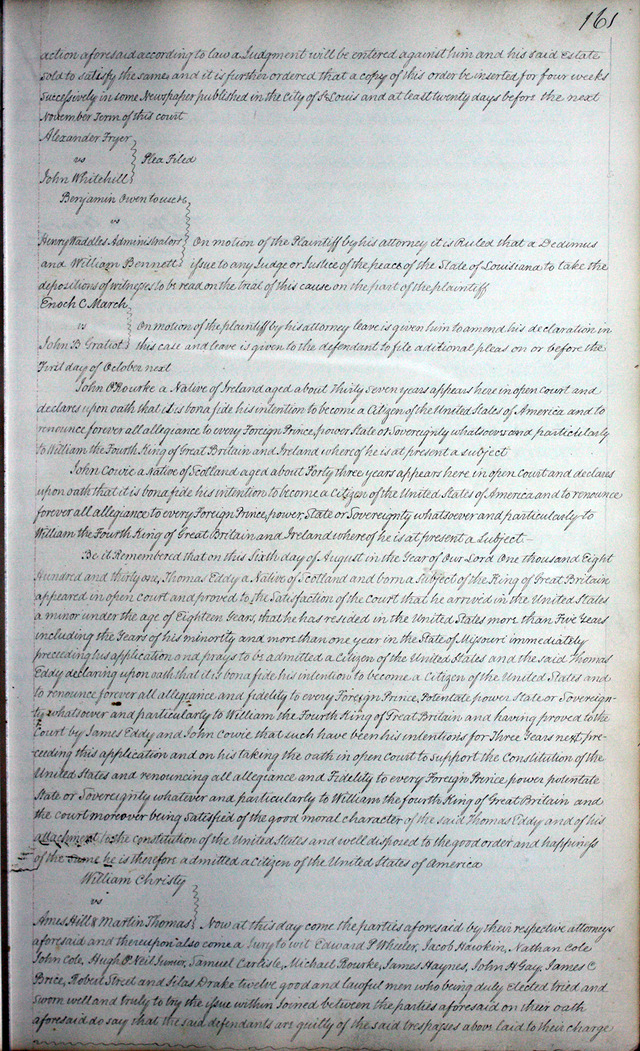 161
action aforesaid according to law a Judgment will be entered against him and his said Estate
sold to satisfy the same, and it is further ordered that a copy of this order be inserted for four weeks
successively in some Newspaper published in the City of St Louis and at least twenty days before the next
November Term of this court
Alexander Fryer
vs Plea Filed
John Whitehill
Benjamin
vs
Henry Waddles Administrators On motion of the Plaintiff by his attorney it is Ruled that a Dedimus
and William Bennett issue to any Judge or Justice of the peace of the State of Louisiana to take the
depositions of witnesses to be read on the trial of this cause on the part of the plaintiff
Enoch C. March
vs On motion of the plaintiff by his attorney leave is given him to amend his declaration in
John B Gratiot this case and leave is given to the defendant to file aditional pleas on or before the
First day of October next
John O'Rourke a Native of Ireland aged about Thirty Seven years appears here in open court and
declares upon oath that it is bona fide his intention to become a Citizen of the United States of America and to
renounce forever all allegiance to every Foreign Prince, power State or Sovereignty whatsoever and particularly
to William the Fourth King of Great Britain and Ireland whereof he is at present a subject
John Cowie a Native of Scotland aged about Forty three years appears here in open Court and declares
upon oath that it is bona fide his intention to become a Citizen of the United States of America and to renounce
forever all allegiance to every Foreign Prince, power, State or Sovereignty whatsoever and particularly to
William the Fourth King of Great Britain and Ireland whereof he is at present a Subject.—
Be it Remembered that on this Sixth day of August in the Year of Our Lord One thousand Eight
Hundred and thirty one, Thomas Eddy a Native of Scotland and born a Subject of the King of Great Britain
appeared in open Court and proved to the Satisfaction of the Court that he arrived in the United States
a minor under the age of Eighteen Years, that he has resided in the United States more than Five Years
including the Years of his minority and more than one year in the State of Missouri immediately
preceeding his application and prays to be admitted a Citizen of the United States and the said Thomas
Eddy declaring upon oath that it is bona fide his intention to become a Citizen of the United States and
to renounce forever all allegance and fidelity to every Foreign Prince, Potentate power State or Sovereign-
ty whatsoever and particularly to William the Fourth King of Great Britain and having proved to the
Court by James Eddy and John Cowie that such have been his intentions for Three Years next, pre-
ceeding this application and on his taking the oath in open court to support the Constitution of the
United States and renouncing all allegiance and Fidelity to every Foreign Prince, power potentate
State or Sovereignty whatever and particularly to William the fourth King of Great Britain and
the court moreover being Satisfied of the good moral character of the said Thomas Eddy and of his
attachment to the constitution of the United States and well disposed to the good order and happiness
of the Same he is therefore admitted a citizen of the United States of America
William Christy
vs
Ames Hill & Martin Thomas Now at this day come the parties aforesaid by their respective attorneys
aforesaid and thereupon also come a Jury to wit Edward P Wheeler, Jacob Hawkin, Nathan Cole
John Cole, Hugh O'Neil Junior, Samuel Carlisle, Michael Rourke, James Haynes, John H Gay, James C
Brice, Robert Steel and Silas Drake twelve good and lawful men who being duly Elected tried and
sworn well and truly to try the issue within Joined between the parties aforesaid on their oath
aforesaid do say that the said defendants are guilty of the said trespasses above laid to their charge